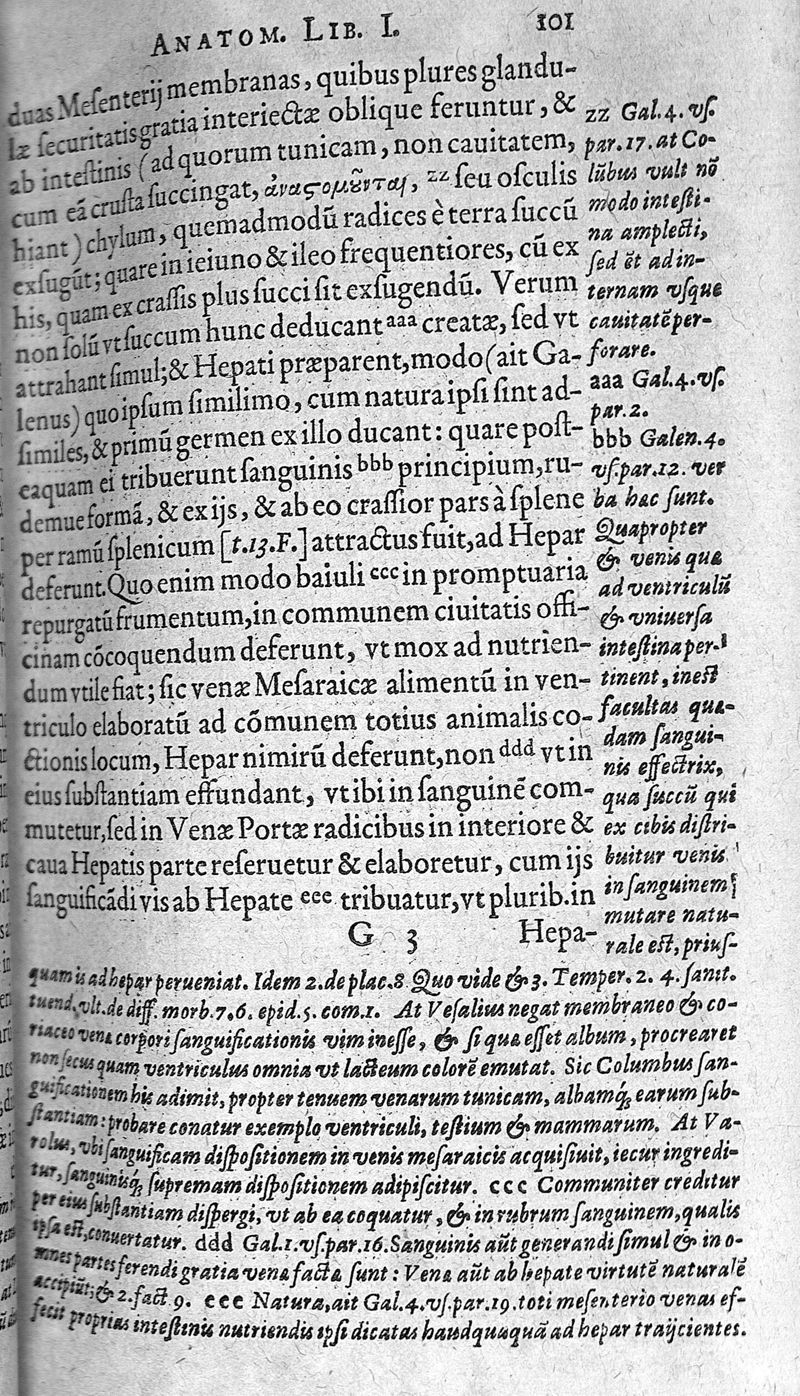 ANATOM. LIB. I. 101
duas Meſenterij membranas, quibus plures glandu-
læ ſecuritatis gratia interiectæ oblique feruntur, &
ab inteſtinis (ad quorum tunicam, non cauitatem,
cum eã cruſta ſuccingat, ἀναστομοῦνται, zz ſeu oſculis
hiant) chylum, quemadmodũ radices è terra ſuccũ
exſugũt; quare in ieiuno & ileo frequentiores, cũ ex
his, quam ex craſſis plus ſucci ſit exſugendũ. Verum
non ſolũ vt ſuccum hunc deducant aaa creatæ, ſed vt
attrahant ſimul; & Hepati præparent, modo (ait Ga-
lenus) quo ipſum ſimilimo, cum natura ipſi ſint ad-
ſimiles, & primũ germen ex illo ducant: quare poſt-
eaquam ei tribuerunt ſanguinis bbb principium, ru-
demue formã, & ex ijs, & ab eo craſſior pars à ſplene
per ramũ ſplenicum [t.13.F.] attractus fuit, ad Hepar
deferunt. Quo enim modo baiuli ccc in promptuaria
repurgatũ frumentum, in communem ciuitatis offi-
cinam cõcoquendum deferunt, vt mox ad nutrien-
dum vtile fiat; ſic venæ Meſaraicæ alimentũ in ven-
triculo elaboratũ ad cõmunem totius animalis co-
ctionis locum, Hepar nimirũ deferunt, non ddd vt in
eius ſubſtantiam effundant, vt ibi in ſanguinẽ com-
mutetur, ſed in Venæ Portæ radicibus in interiore &
caua Hepatis parte reſeruetur & elaboretur, cum ijs
ſanguificãdi vis ab Hepate eee tribuatur, vt plurib. in
G 3 Hepa-
zz Gal. 4. vſ.
par. 17. at Co-
lũbus vult nõ
modo inteſti-
na amplecti,
ſed ẽt ad in-
ternam vſque
cauitatẽ per-
forare.
aaa Gal. 4. vſ.
par. 2.
bbb Galen. 4.
vſ. par. 12. ver
ba hæc ſunt.
Quapropter
& venis quæ
ad ventriculũ
& vniuerſa
inteſtina per-
tinent, ineſt
facultas quæ-
dam ſangui-
nis effectrix,
qua ſuccũ qui
ex cibis diſtri-
buitur venis
in ſanguinem
mutare natu-
rale eſt, priuſ-
quam is ad hepar perueniat. Idem 2. de plac. 8. Quo vide & 3. Temper. 2. 4. ſanit.
tuend. vlt. de diff. morb. 7. 6. epid. 5. com. 1. At Veſalius negat membraneo & co-
riaceo venæ corpori ſanguificationis vim ineſſe, & ſi qua eſſet album, procrearet
non ſecus quam ventriculus omnia vt lacteum colorẽ emutat. Sic Columbus ſan-
guificationem his adimit, propter tenuem venarum tunicam, albamq́; earum ſub-
ſtantiam: probare conatur exemplo ventriculi, teſtium & mammarum. At Va-
rolus, vbi ſanguificam diſpoſitionem in venis meſaraicis acquiſiuit, iecur ingredi-
tur, ſanguinisq́; ſupremam diſpoſitionem adipiſcitur. ccc Communiter creditur
per eius ſubſtantiam diſpergi, vt ab ea coquatur, & in rubrum ſanguinem, qualis
ipſa eſt, conuertatur. ddd Gal. 1. vſ. par. 16. Sanguinis aũt generandi ſimul & in o-
mnes partes ferendi gratia venæ factæ ſunt: Venæ aũt ab hepate virtutẽ naturalẽ
accipiũt; & 2. fact 9. eee Natura, ait Gal. 4. vſ. par. 19. toti meſenterio venas ef-
fecit proprias inteſtinis nutriendis ipſi dicatas haudquaquã ad hepar traijcientes.